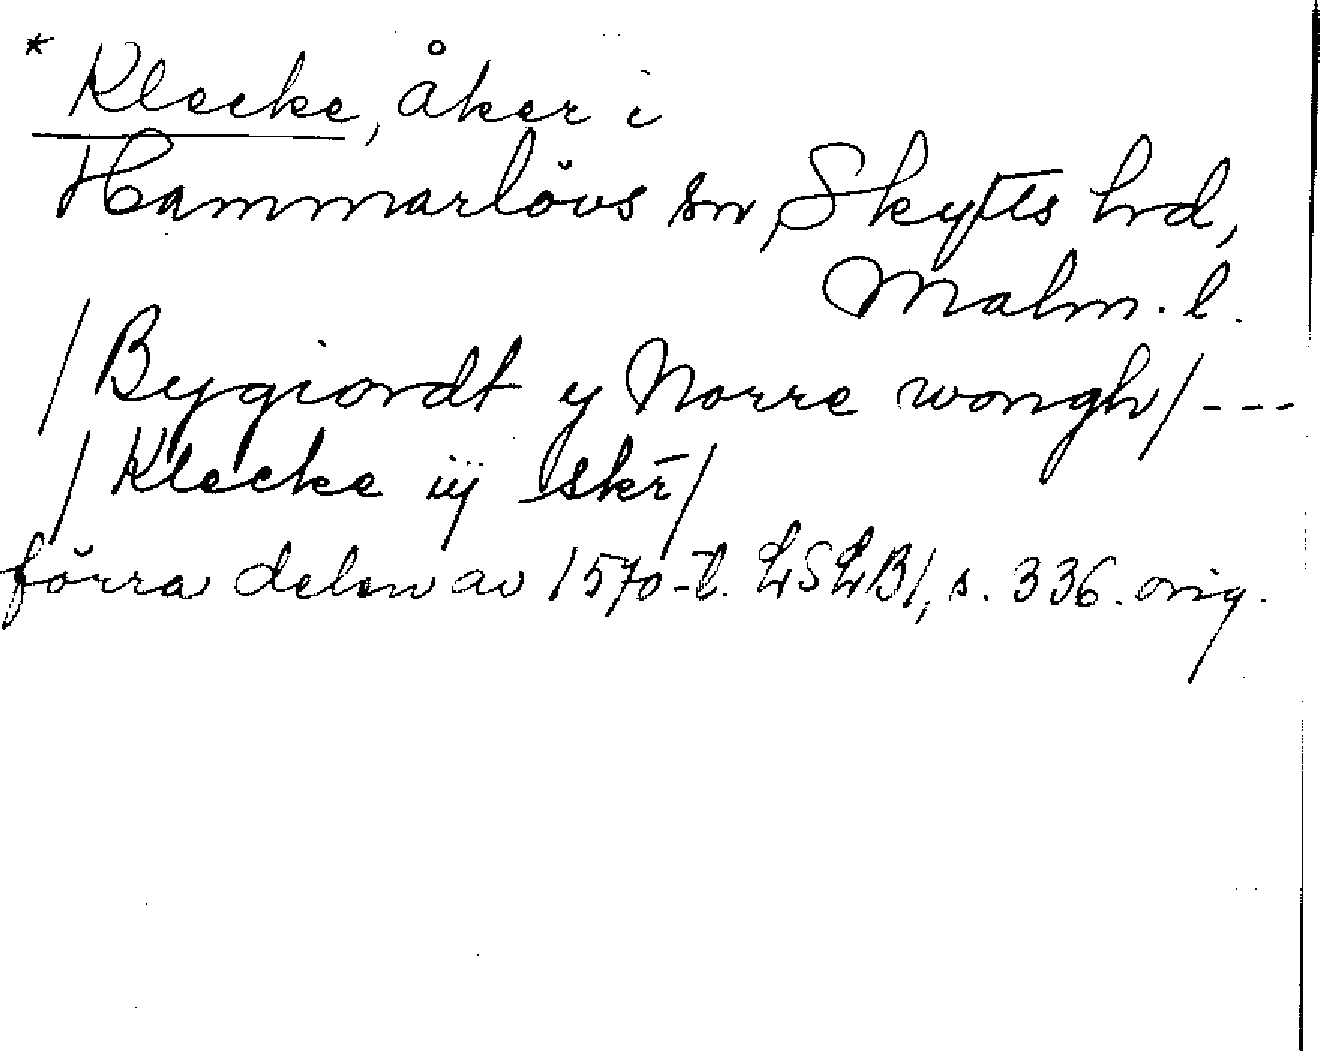 * Klecke, åker i
Hammarlövs sn, Skytts hrd,
Malm. l.
/Bygiordt y Norre wongh/ ---
/Klecke iij skr̄/
förra delen av 1570-t. LSLB1, s. 336. orig.